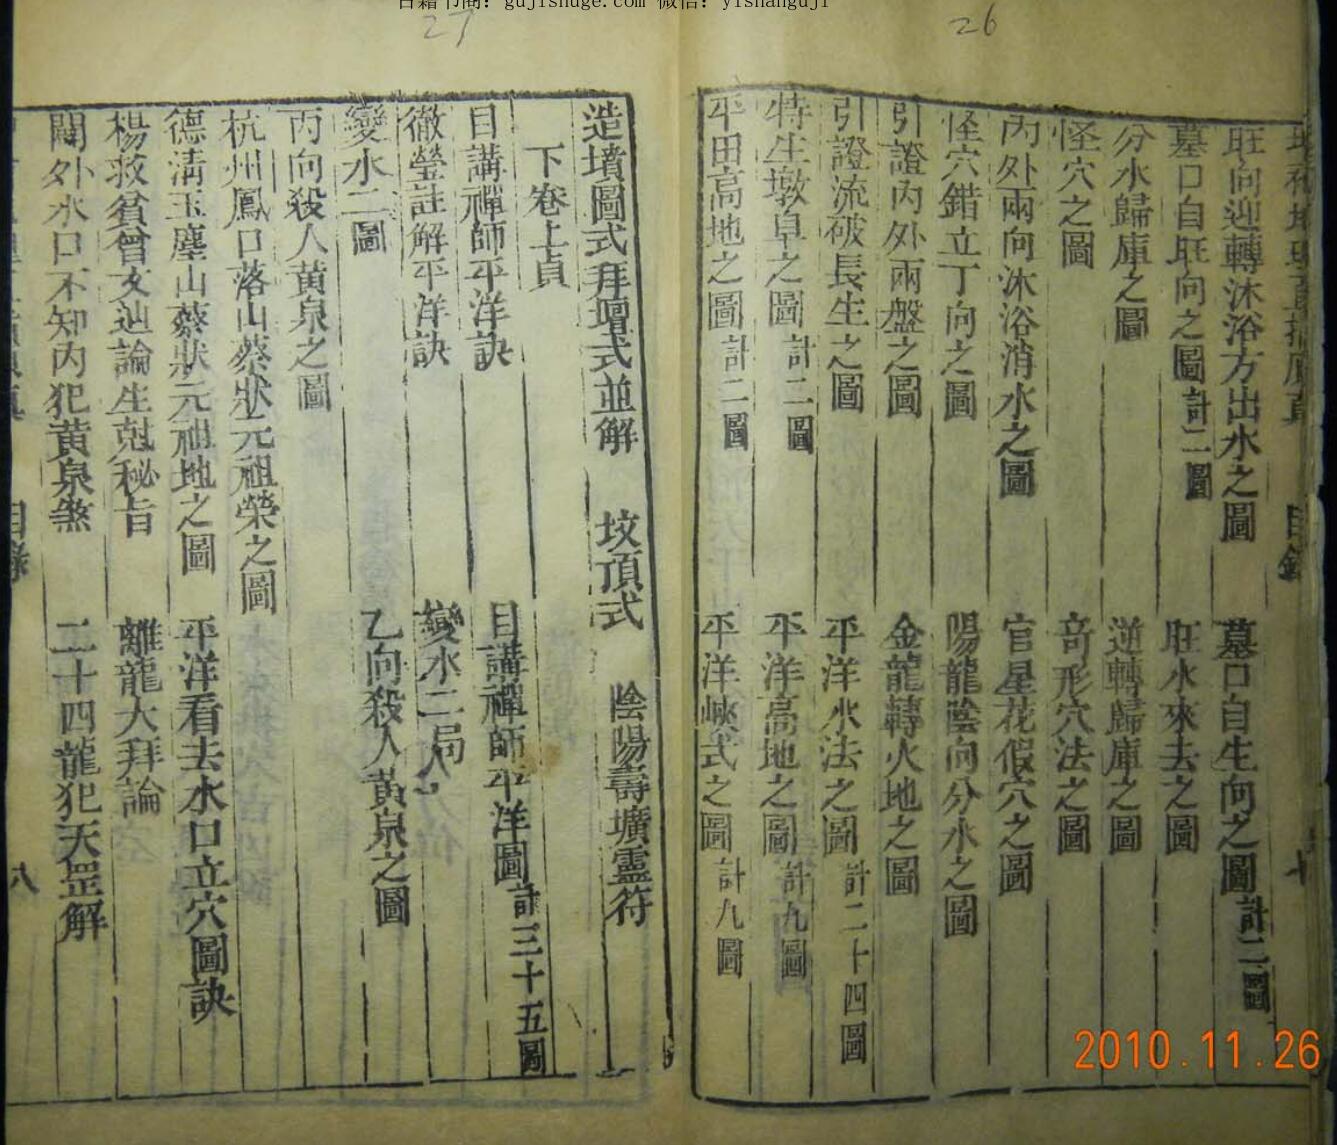 古籍书阁：gujishuge.com 微信：yishanguji
26
27
目錄
旺向迎轉沐浴方出水之圖 墓口自生向之圖計二圖
墓口自旺向之圖計二圖 旺水來去之圖
分水歸庫之圖 逆轉歸庫之圖
怪穴之圖 奇形穴法之圖
內外兩向沐浴消水之圖 官星花假穴之圖
怪穴錯立丁向之圖 陽龍陰向分水之圖
引證內外兩盤之圖 金龍轉火地之圖
引證流破長生之圖 平洋水法之圖計二十四圖
特生墩阜之圖計二圖 平洋高地之圖計九圖
平田高地之圖計二圖 平洋峽式之圖計九圖
造墳圖式拜壇式並解 坟頂式 陰陽壽壙靈符
下卷上貞
目講禪師平洋訣 目講禪師平洋圖計三十五圖
徹瑩註解平洋訣 變水二局
變水二圖 乙向殺人黃泉之圖
丙向殺人黃泉之圖
杭州鳳口落山蔡狀元祖榮之圖
德清玉塵山蔡狀元祖地之圖 平洋看去水口立穴圖訣
楊救貧曾文辿論生尅秘旨 離龍大拜論
關外水口不知內犯黃泉煞 二十四龍犯天罡解
目錄 八
2010.11.26